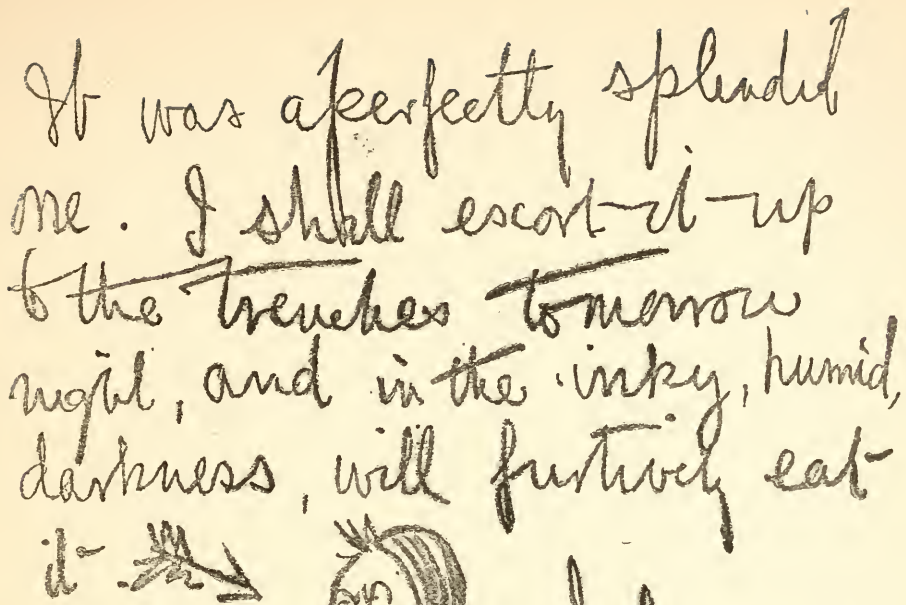 It was a perfectly splendid
one. I shall escort it up
to the trenches tomorrow
night, and in the inky, humid,
darkness, will furtively eat
it